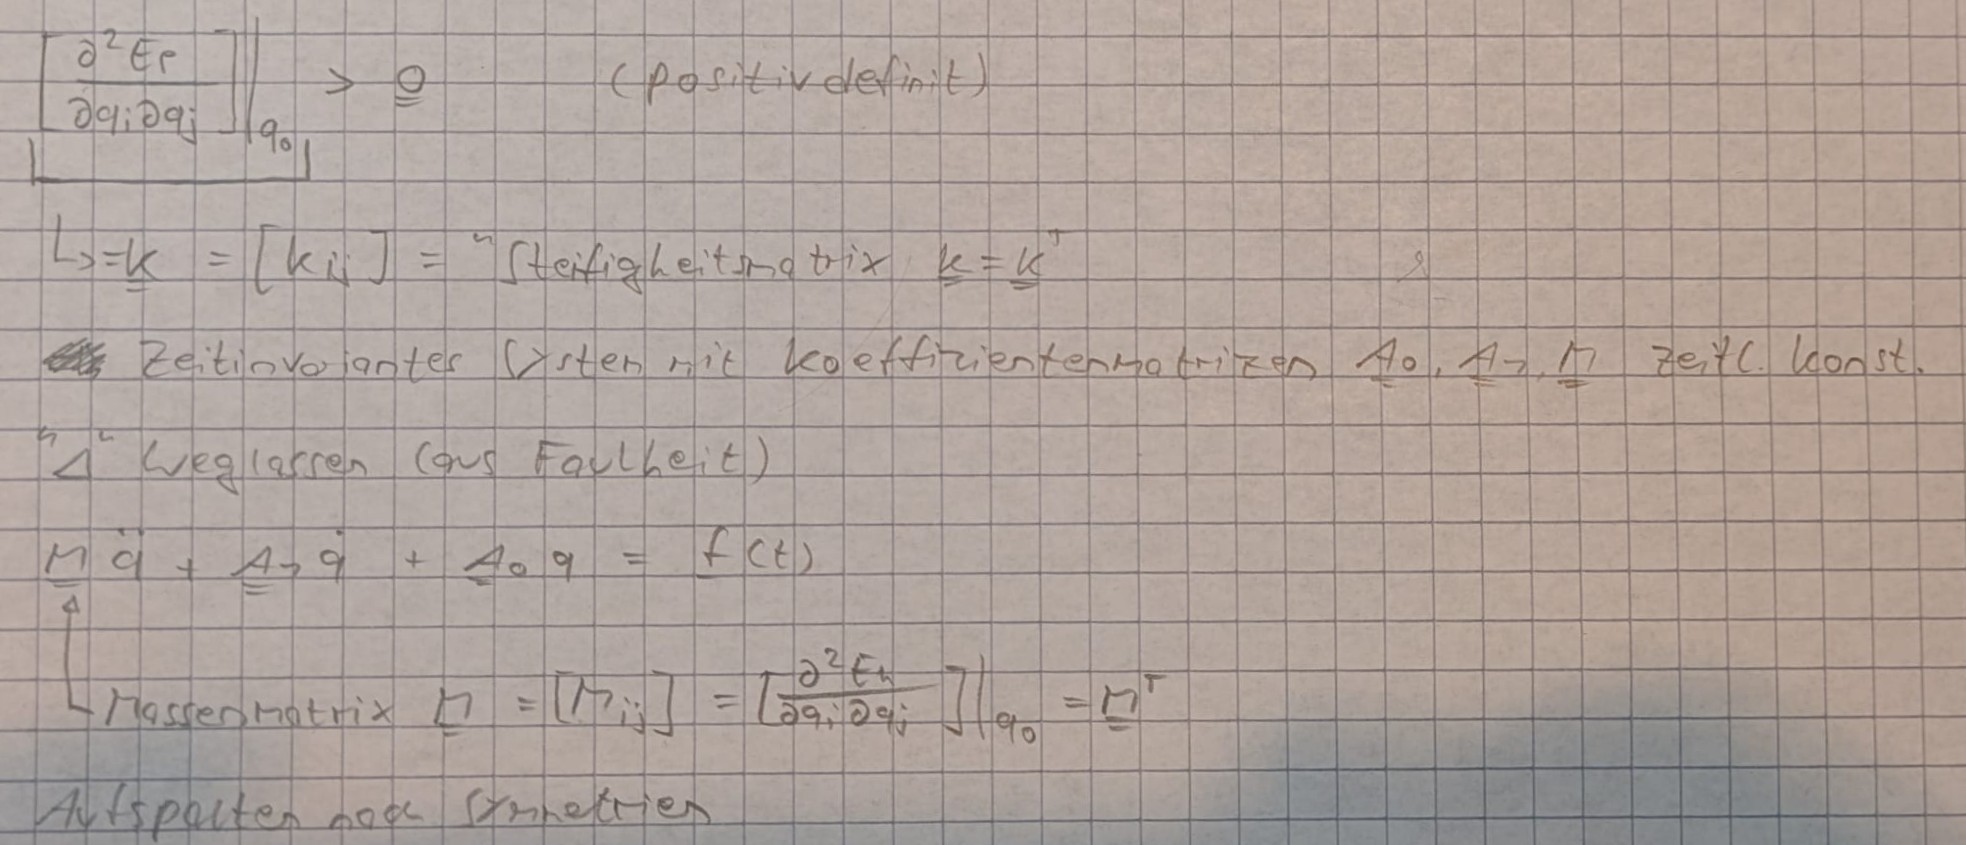 [∂²Ep / ∂qi∂qj]|q0 > 0 (positiv definit)
↳ = K = [kij] = "Steifigkeitsmatrix K = Kᵀ
Zeitinvariantes System mit Koeffizientenmatrizen A0, A1, M zeitl. konst.
"Δ" weglassen (aus Faulheit)
M q̈ + A1 q̇ + A0 q = f(t)
Massenmatrix M = [Mij] = [∂²Ek / ∂qi∂qj]|q0 = Mᵀ
Aufspalten nach Symmetrien